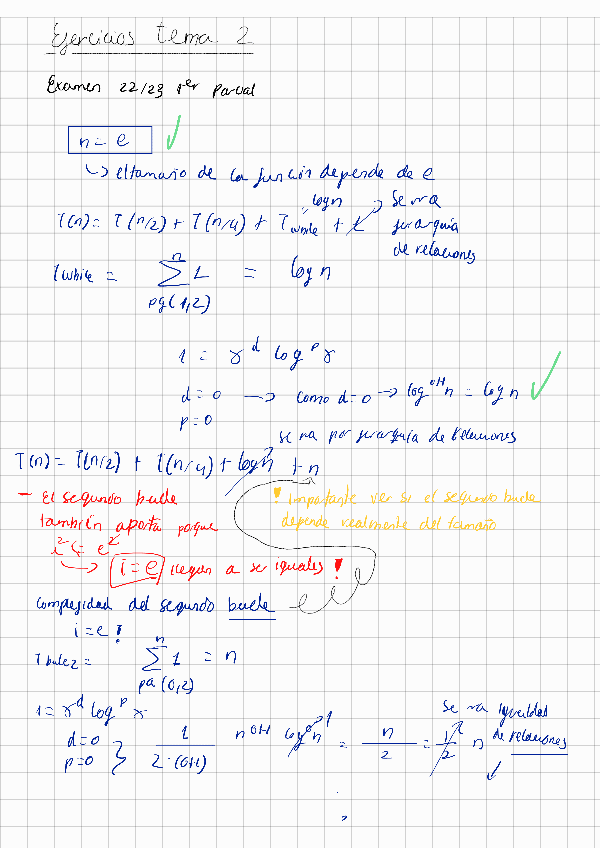 Ejercicios tema 2
Examen 22/23 1er Parcial
n = e
↳ el tamaño de la función depende de e
T(n) = T(n/2) + T(n/4) + Twhile + 1
log n
Se va
jerarquía
de relaciones
Twhile = n Σ pg(1,2) 1 = log n
1 = r^d log^p r
d = 0 → como d=0 → log^{0+1} n = log n
p = 0
se va por jerarquía de relaciones
T(n) = T(n/2) + T(n/4) + log n + n
- El segundo bucle
también aporta porque
i² <= e²
→ i = e llegan a ser iguales !
! Importante ver si el segundo bucle
depende realmente del tamaño
Complejidad del segundo bucle
i = e !
Tbucle2 = n Σ pa(0,2) 1 = n
1 = r^d log^p r
d = 0
p = 0
1 / 2·(0+1) n^{0+1} log^0 n = n / 2 = 1/2 n
1
Se va igualdad
de relaciones